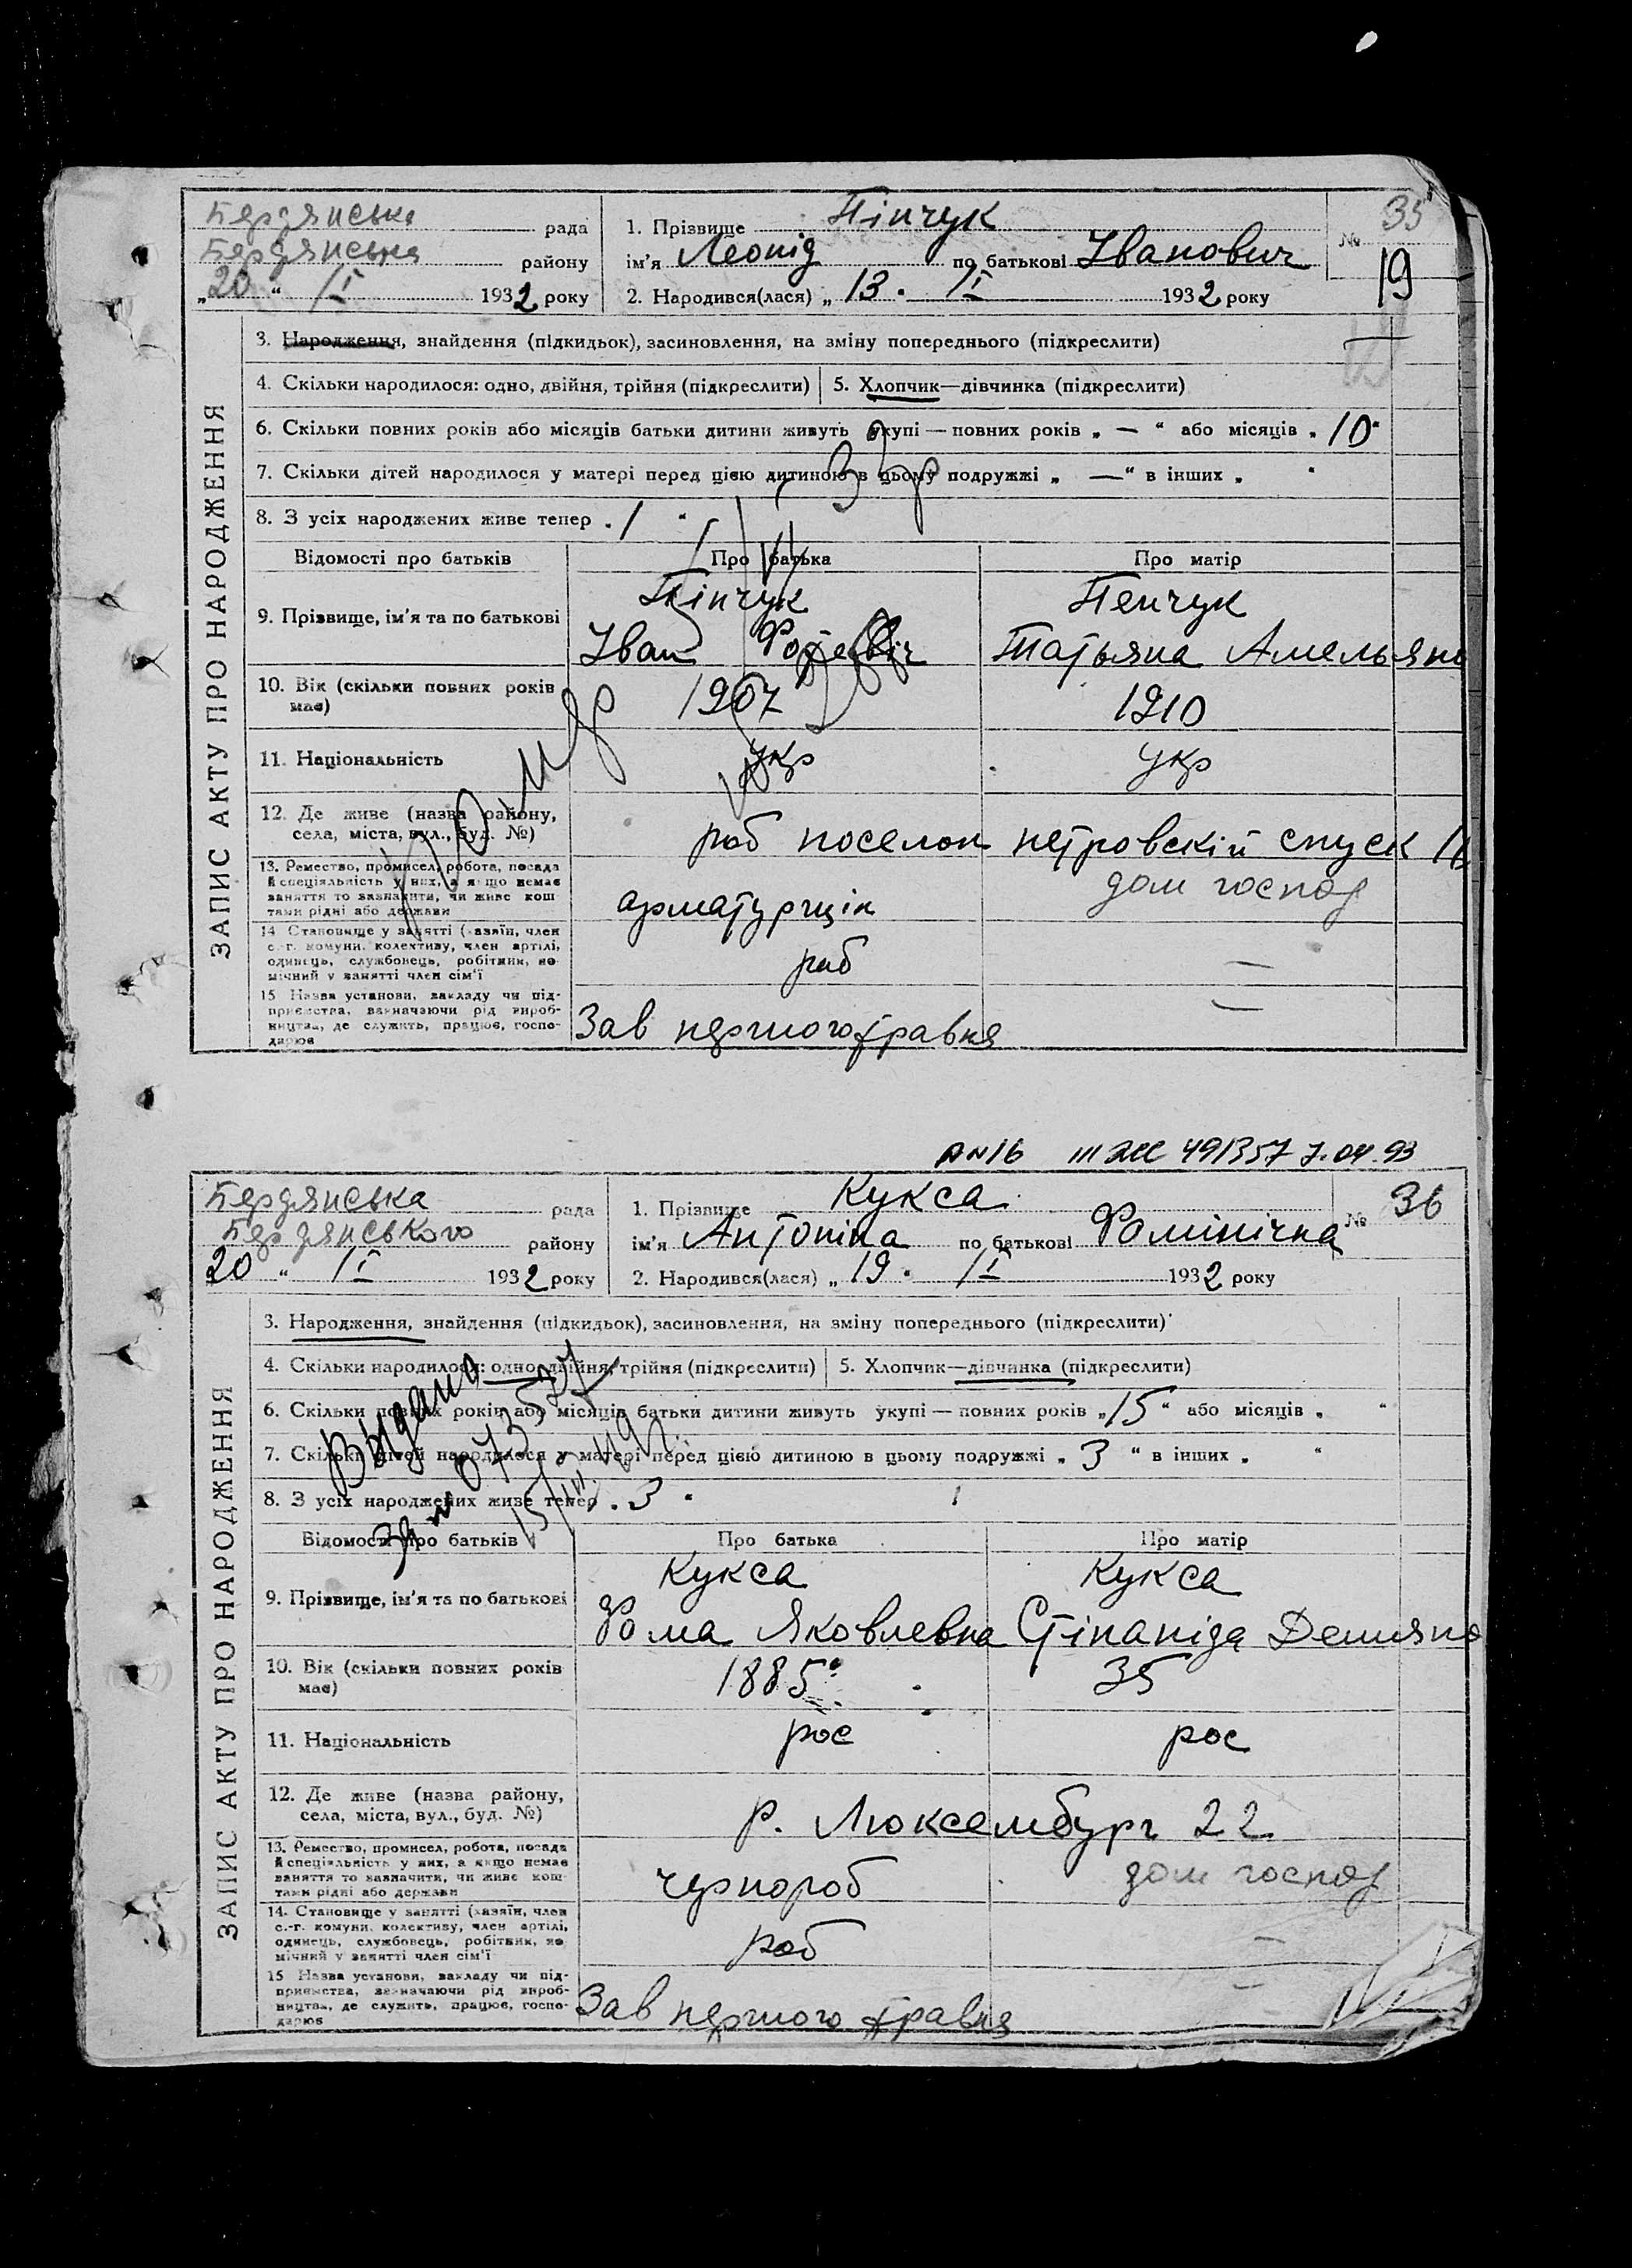 Бердянська рада 1. Прізвище Пінчук № 35
Бердянська району ім'я Леонід по батькові Іванович 19
„20“ I 1932 року 2. Народився(лася) „13“ I 1932 року
ЗАПИС АКТУ ПРО НАРОДЖЕННЯ
3. Народження, знайдення (підкидьок), засиновлення, на зміну попереднього (підкреслити)
4. Скільки народилося: одно, двійня, трійня (підкреслити) 5. Хлопчик—дівчинка (підкреслити)
6. Скільки повних років або місяців батьки дитини живуть укупі — повних років „ — “ або місяців „10“
7. Скільки дітей народилося у матері перед цією дитиною в цьому подружжі „ — “ в інших „ “
8. З усіх народжених живе тепер „1“
Відомості про батьків Про батька Про матір
9. Прізвище, ім'я та по батькові Пінчук Пенчук
Іван Татьяна Амельяно
10. Вік (скільки повних років має) 1907 1910
11. Національність укр укр
12. Де живе (назва району, села, міста, вул., буд. №)
роб поселок петровскій спуск
13. Ремество, промисел, робота, посада й спеціяльність у них, а якщо немає заняття то зазначити, чи живе коштами рідні або держави
арматурщік дом господ
14 Становище у занятті (хазяїн, член с.-г. комуни, колективу, член артілі, одинець, службовець, робітник, помічний у занятті член сім'ї
роб —
15 Назва установи, закладу чи підприємства, зазначаючи рід виробництва, де служить, працює, господарює
Зав першого травня —
АN16 III ЖС 491357 7.04.93
Бердянська рада 1. Прізвище Кукса № 36
Бердянського району ім'я Антоніна по батькові Фомінічна
20 “ I 1932 року 2. Народився(лася) „19“ I 1932 року
ЗАПИС АКТУ ПРО НАРОДЖЕННЯ
3. Народження, знайдення (підкидьок), засиновлення, на зміну попереднього (підкреслити)
4. Скільки народилося: одно, двійня, трійня (підкреслити) 5. Хлопчик—дівчинка (підкреслити)
6. Скільки повних років або місяців батьки дитини живуть укупі — повних років „15“ або місяців „ “
7. Скільки дітей народилося у матері перед цією дитиною в цьому подружжі „3“ в інших „ “
8. З усіх народжених живе тепер „3“
Выдано
за №
Відомості про батьків Про батька Про матір
9. Прізвище, ім'я та по батькові Кукса Кукса
Фома Яковлевна Стіпаніда Демяно
10. Вік (скільки повних років має) 1885 35
11. Національність рос рос
12. Де живе (назва району, села, міста, вул., буд. №)
Р. Люксембург 22
13. Ремество, промисел, робота, посада й спеціяльність у них, а якщо немає заняття то зазначити, чи живе коштами рідні або держави
чернороб дом господ
14. Становище у занятті (хазяїн, член с.-г. комуни, колективу, член артілі, одинець, службовець, робітник, помічний у занятті член сім'ї
роб —
15 Назва установи, закладу чи підприємства, зазначаючи рід виробництва, де служить, працює, господарює
Зав першого травня —